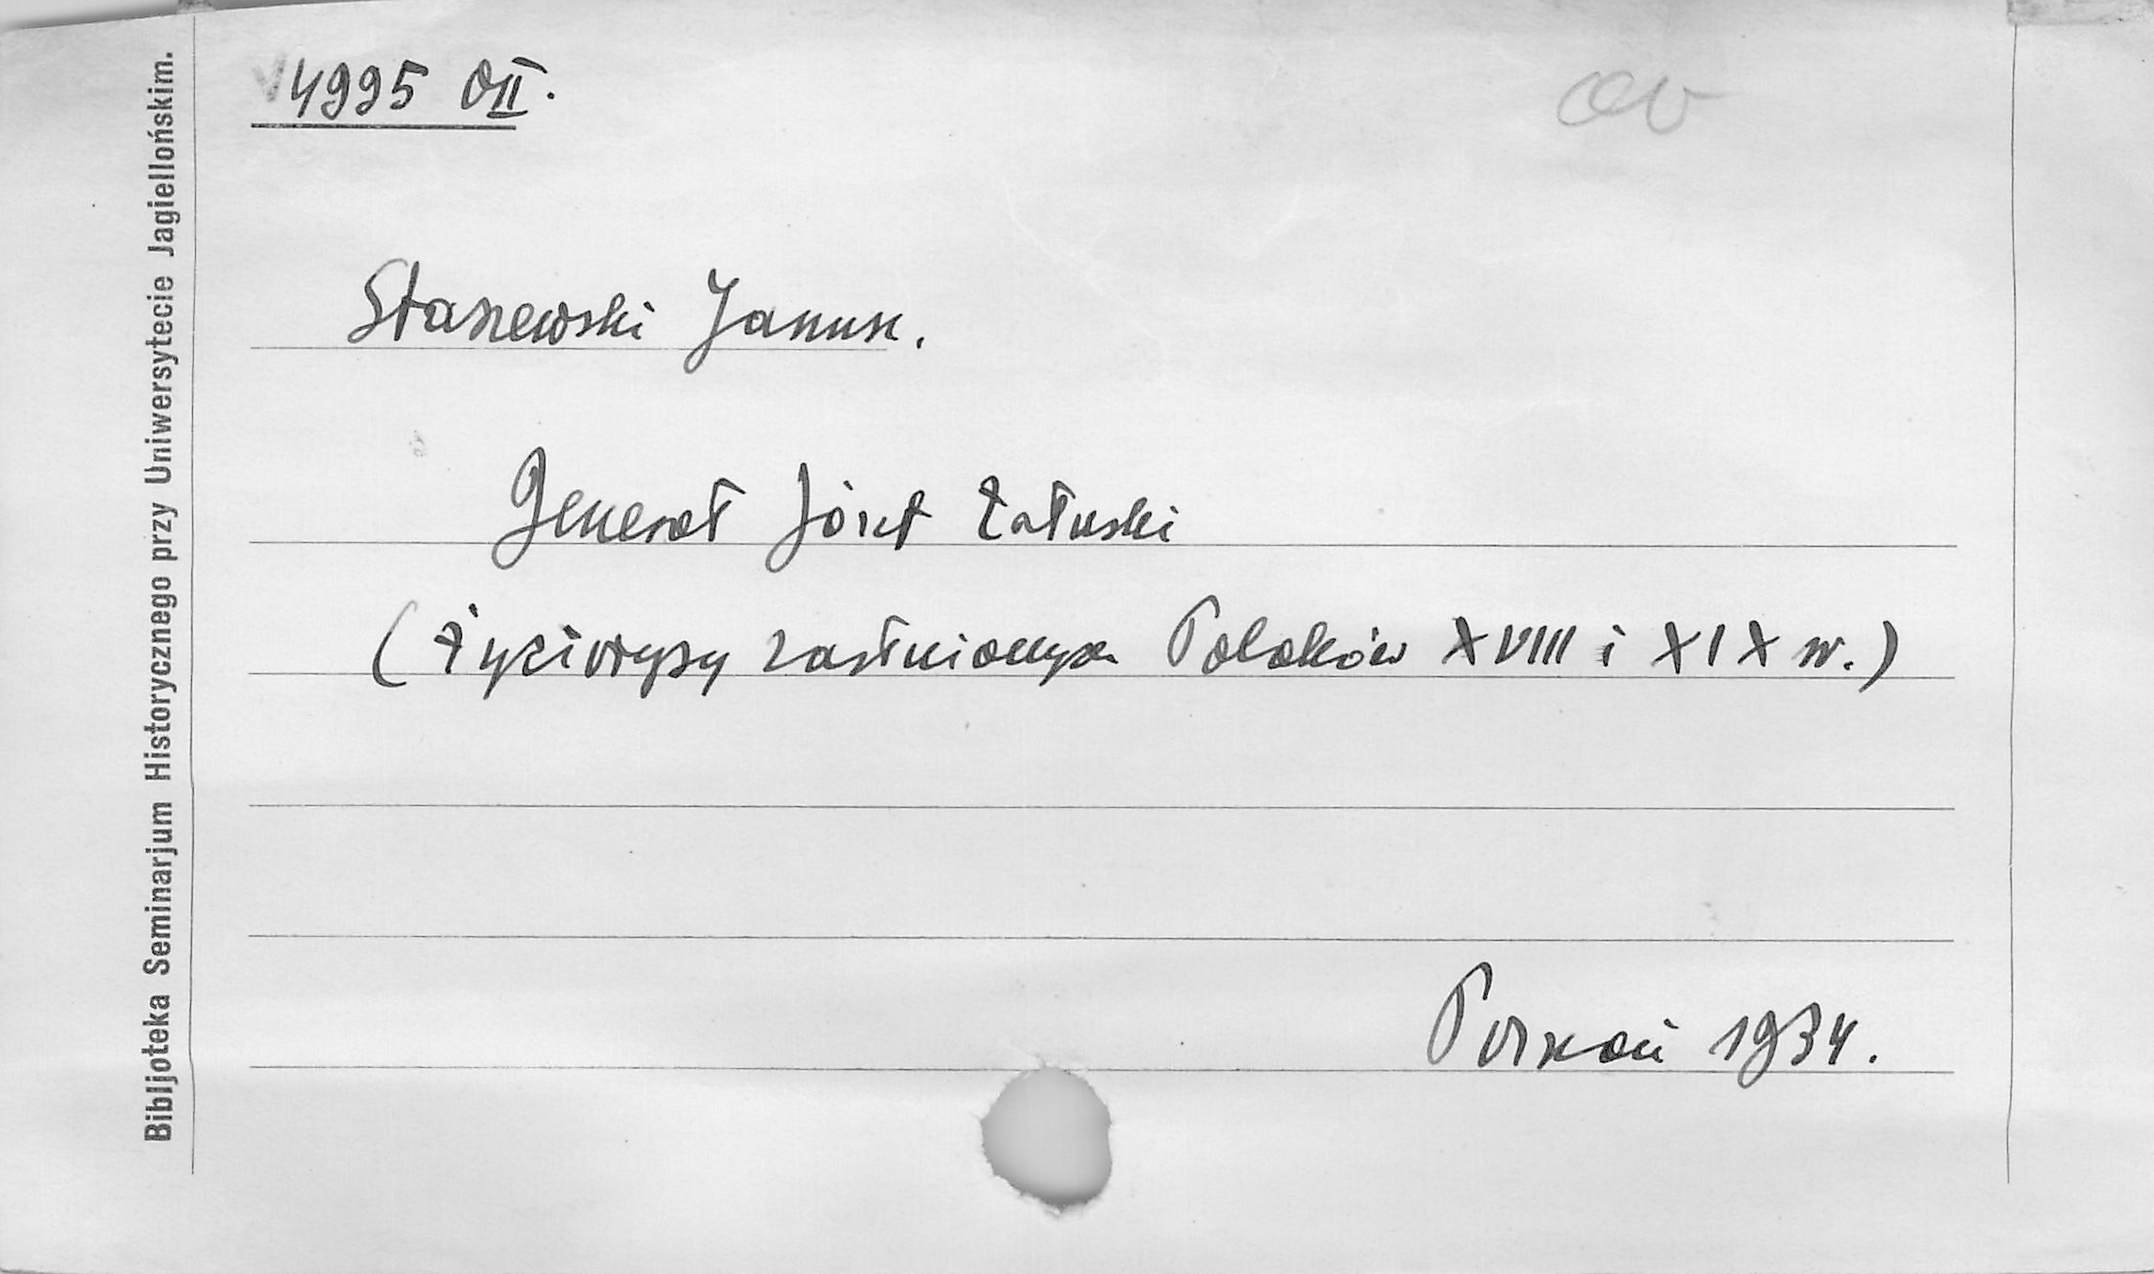 4995 OII.
Staszewski Janusz.
Generał Józef Załuski
(Życiorysy zasłużonych Polaków XVIII i XIX w.)
Poznań 1934.
Bibljoteka Seminarjum Historycznego przy Uniwersytecie Jagiellońskim.